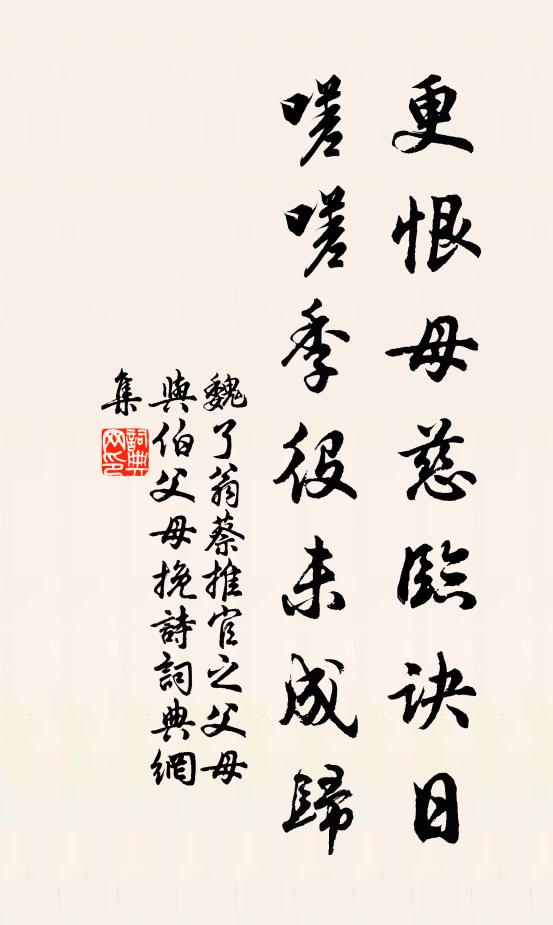 更恨母慈臨訣日
嗟嗟季役未成歸
魏了翁蔡推官之父母
與伯父母挽詩詞典網
集
詞典网印